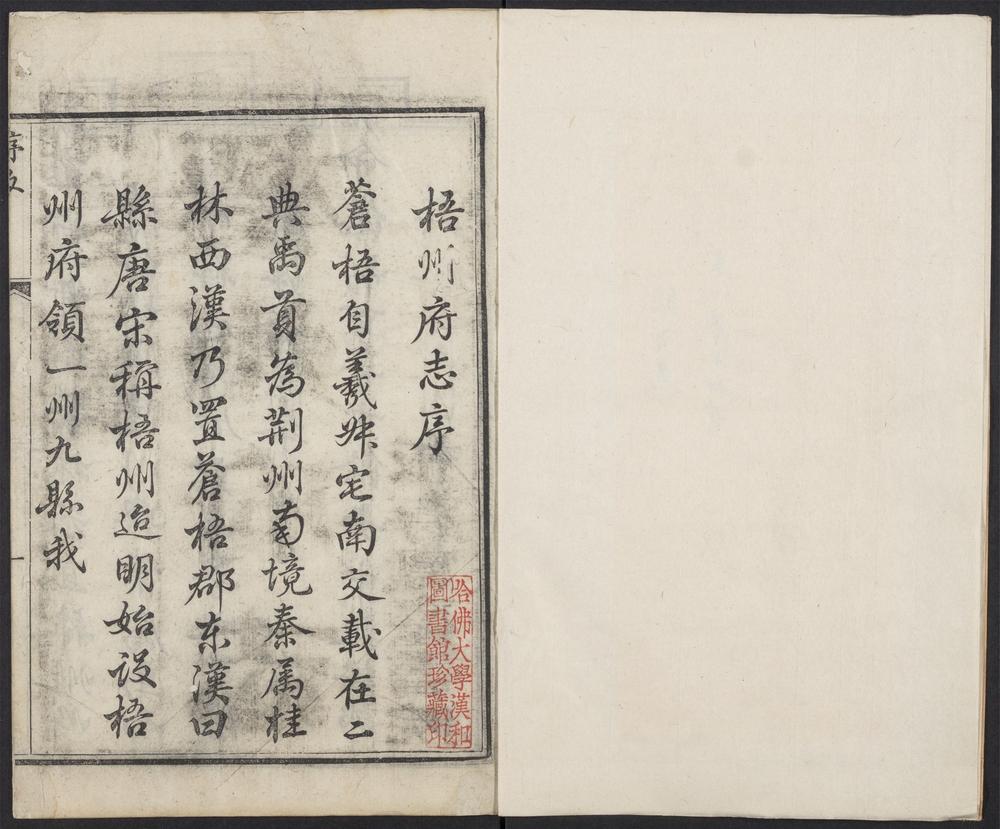 梧州府志序
蒼梧自羲叔宅南交載在二
典禹貢為荆州南境秦属桂
林西漢乃置蒼梧郡东漢曰
縣唐宋稱梧州迨明始设梧
州府領一州九縣我
序
一
哈佛大學漢和
圖書館珍藏印